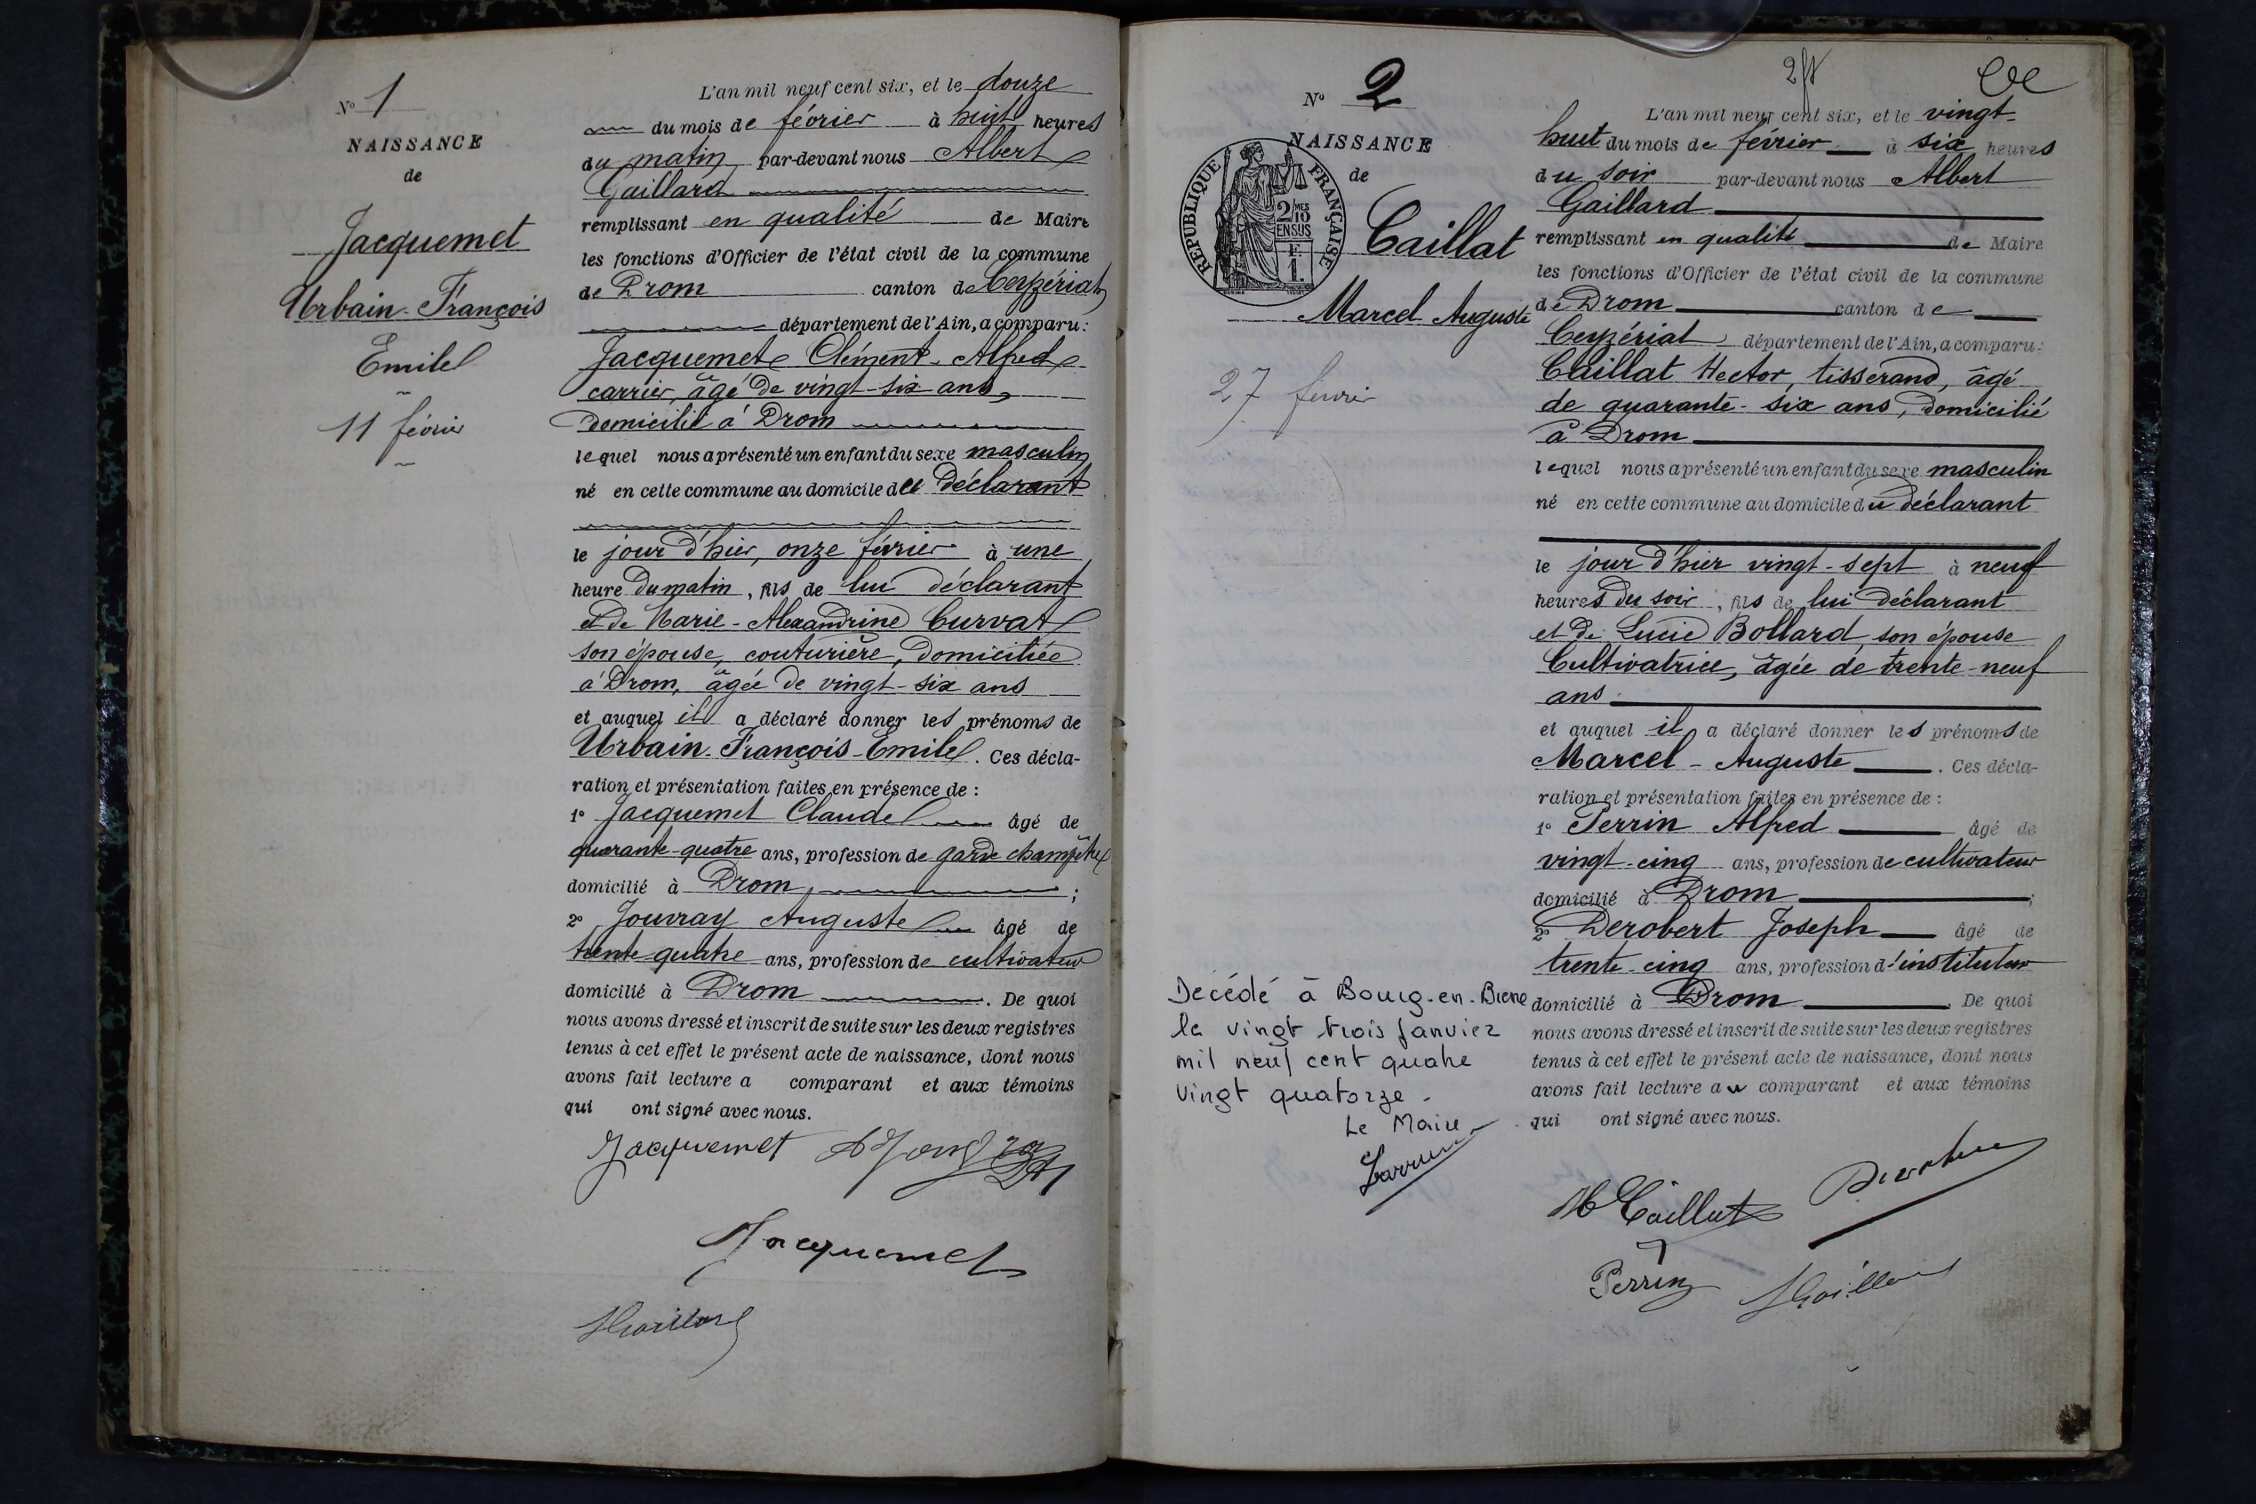 Nº 1
NAISSANCE
de
Jacquemet
Urbain-François
Emile
11 février
L'an mil neuf cent six, et le douze
du mois de février à huit heures
du matin par-devant nous Albert
Gaillard
remplissant en qualité de Maire
les fonctions d'Officier de l'état civil de la commune
de Drom canton de Ceyzériat
département de l'Ain, a comparu:
Jacquemet Clément-Alfred
carrier, âgé de vingt-six ans,
domicilié à Drom
lequel nous a présenté un enfant du sexe masculin
né en cette commune au domicile du Déclarant
le jour d'hier, onze février à une
heure du matin, fils de lui déclarant
et de Marie-Alexandrine Curvat
son épouse, couturière, domiciliée
à Drom, âgée de vingt-six ans
et auquel il a déclaré donner les prénoms de
Urbain-François-Emile. Ces décla-
ration et présentation faites en présence de :
1º Jacquemet Claude âgé de
quarante-quatre ans, profession de garde champêtre
domicilié à Drom ;
2º Jouvray Auguste âgé de
trente quatre ans, profession de cultivateur
domicilié à Drom . De quoi
nous avons dressé et inscrit de suite sur les deux registres
tenus à cet effet le présent acte de naissance, dont nous
avons fait lecture a comparant et aux témoins
qui ont signé avec nous.
Jacquemet
Jacquemet
Gaillard
Nº 2
NAISSANCE
de
RÉPUBLIQUE FRANÇAISE
2/10 MES
EN SUS
F
1.
Caillat
Marcel Auguste
27 février
Décédé à Bourg-en-Bresse
le vingt trois Janvier
mil neuf cent quatre
vingt quatorze -
Le Maire
L'an mil neuf cent six, et le vingt-
huit du mois de février à six heures
du soir par-devant nous Albert
Gaillard
remplissant en qualité de Maire
les fonctions d'Officier de l'état civil de la commune
de Drom canton de
Ceyzériat, département de l'Ain, a comparu:
Caillat Hector, tisserand, âgé
de quarante-six ans, domicilié
à Drom
lequel nous a présenté un enfant du sexe masculin
né en cette commune au domicile du déclarant
le jour d'hier vingt-sept à neuf
heures du soir, fils de lui déclarant
et de Lucie Bollard, son épouse
Cultivatrice, âgée de trente-neuf
ans
et auquel il a déclaré donner les prénoms de
Marcel-Auguste . Ces décla-
ration et présentation faites en présence de :
1º Perrin Alfred âgé de
vingt-cinq ans, profession de cultivateur
domicilié à Drom ;
2º Derobert Joseph âgé de
trente-cinq ans, profession d'instituteur
domicilié à Drom . De quoi
nous avons dressé et inscrit de suite sur les deux registres
tenus à cet effet le présent acte de naissance, dont nous
avons fait lecture au comparant et aux témoins
qui ont signé avec nous.
H Caillat
Perrin
Gaillard